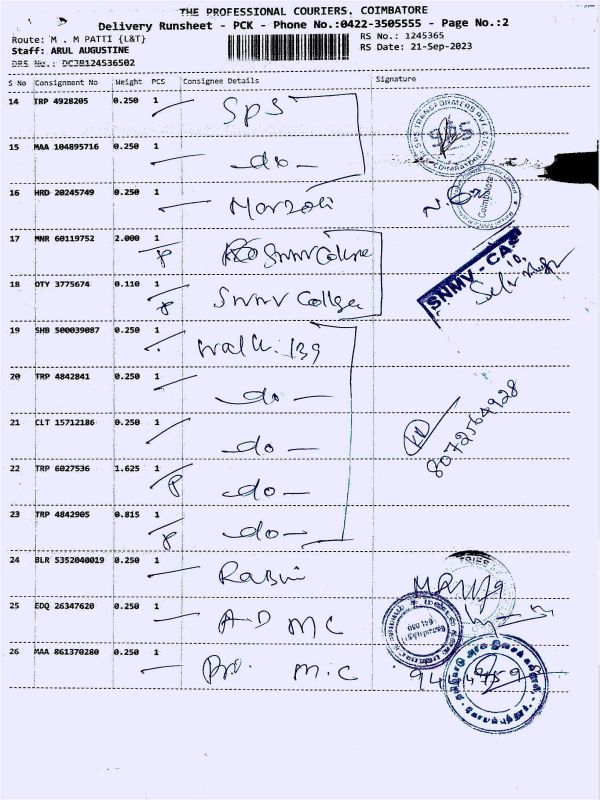 THE PROFESSIONAL COURIERS, COIMBATORE
Delivery Runsheet - PCK - Phone No.:0422-3505555 - Page No.:2
Route: M . M PATTI {L&T}
RS No.: 1245365
Staff: ARUL AUGUSTINE
RS Date: 21-Sep-2023
DRS No.: DCJB124536502
S No Consignment No Weight PCS Consignee Details Signature
14 TRP 4928205 0.250 1 SPS
15 MAA 104895716 0.250 1 do
16 HRD 20245749 0.250 1
17 MNR 60119752 2.000 1 SNMV College
18 OTY 3775674 0.110 1 SNMV College
SNMV - CAS
19 SHB 500039087 0.250 1 walk. 139
20 TRP 4842841 0.250 1 do
21 CLT 15712186 0.250 1 do
8072564928
22 TRP 6027536 1.625 1 do
23 TRP 4842905 0.815 1 do
24 BLR 5352040019 0.250 1
25 EDQ 26347620 0.250 1 A.D MC
26 MAA 861370280 0.250 1 M.C
Coimbatore